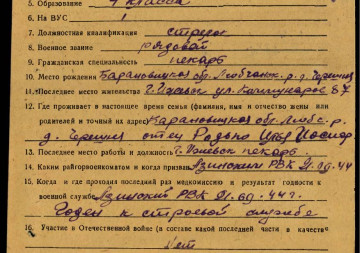 5. Образование 4 класса
6. На ВУС 1
7. Должностная квалификация стрелок
8. Военное звание рядовой
9. Гражданская специальность пекарь
10. Место рождения Барановицкая обл. Любчанск. р. д.
11. Последнее место жительства г. Ижевск ул. Коммунаров 67
12. Где проживает в настоящее время семья (фамилия, имя и отчество жены или
родителей и точный их адрес) Барановицкая обл. Любч. р.
д. отец Родько Иосиф
13. Последнее место работы и должность г. Ижевск пекарь.
14. Каким райгорвоенкоматом и когда призван РВК 21.09.44
15. Когда и где проходил последний раз медкомиссию и результат годности к
военной службе РВК 21.09.44 г.
Годен к строевой службе
16. Участие в Отечественной войне (в составе какой последней части в качестве
Нет